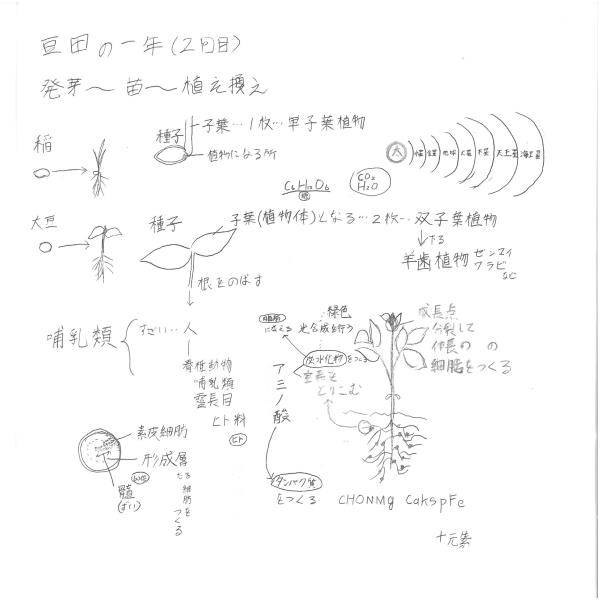 豆田の一年(2回目)
発芽〜苗〜植え換え
稲
種子
子葉…1枚…単子葉植物
植物になる所
太
水星
金星
地球
火星
木星
天王星
海王星
C6H12O6
糖
CO2
H2O
大豆
種子
子葉(植物体)となる…2枚…双子葉植物
羊歯植物
ゼンマイ
ワラビ
など
根をのばす
哺乳類
すごい…人
脊椎動物
哺乳類
霊長目
ヒト科
ヒト
脂肪
になる
緑色
光合成を行う
炭水化物をつくる
窒素を
とりこむ
アミノ酸
タンパク質
をつくる
成長点
分裂して
伸長の の
細胞をつくる
表皮細胞
形成層
なる細胞をつくる
髄
(ずい)
CHONMg CaKSPFe
十元素